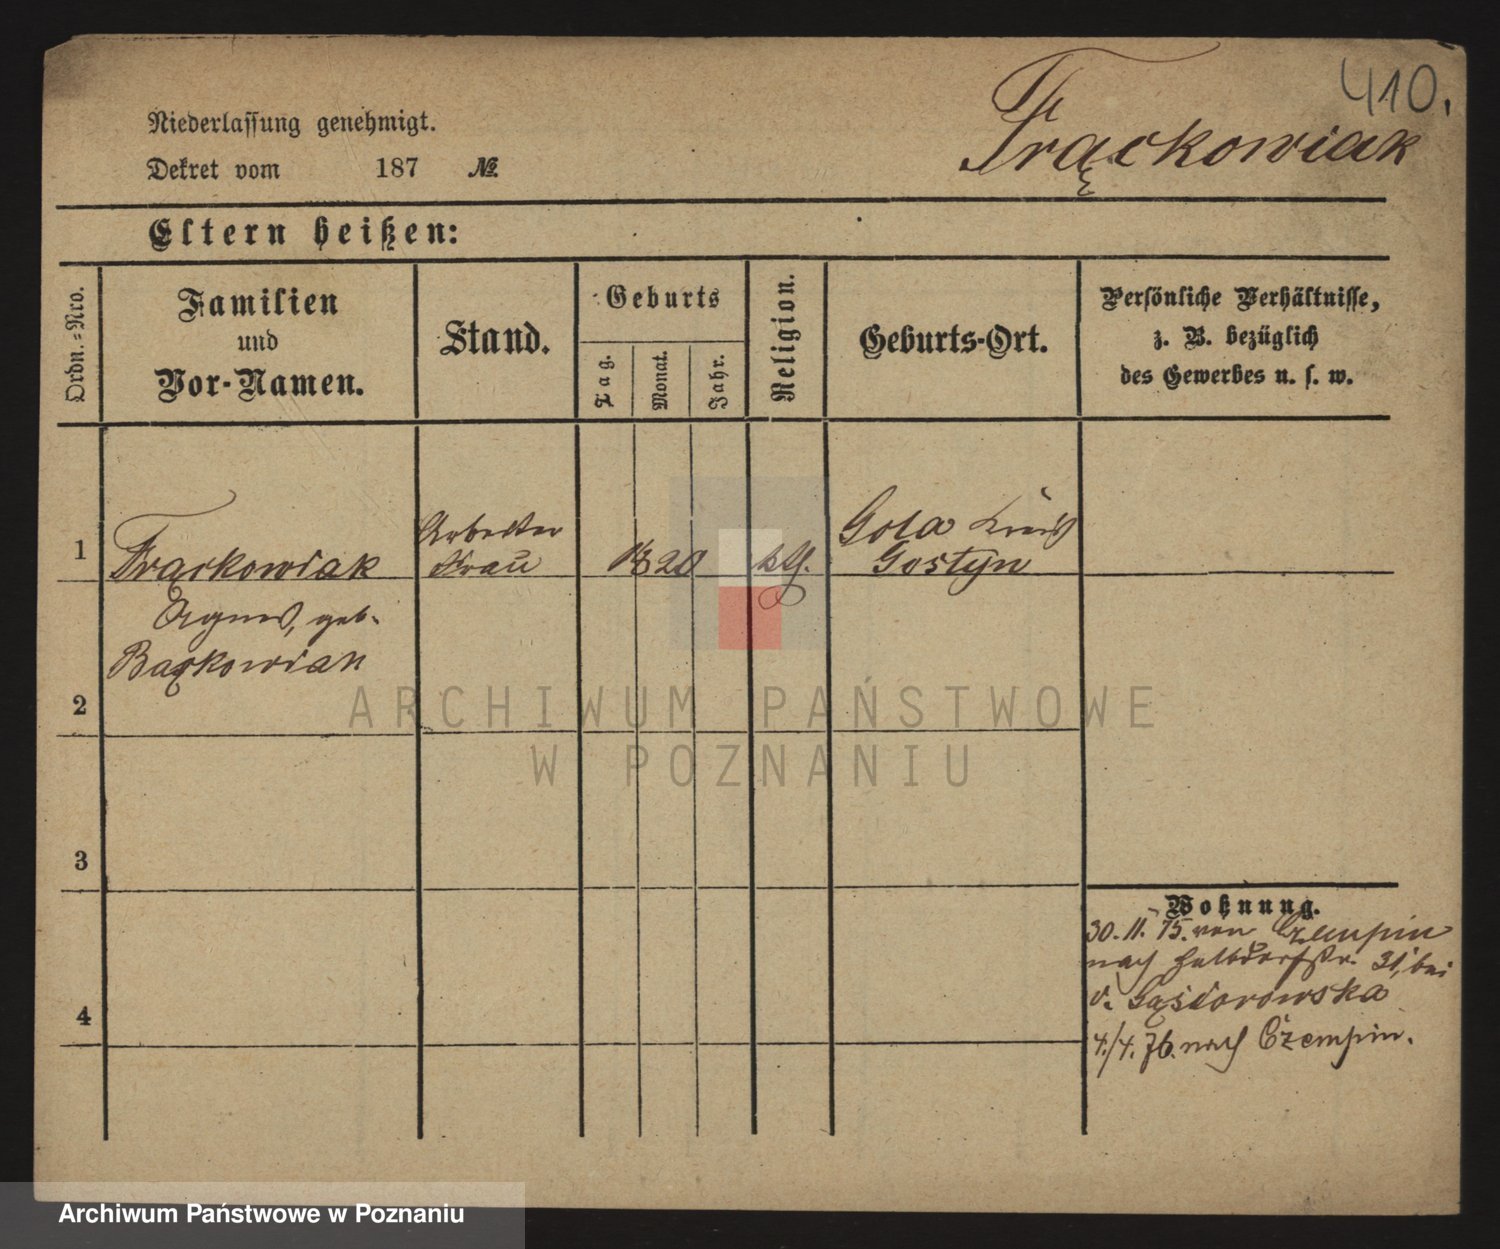 410.
Frąckowiak
Niederlassung genehmigt.
Dekret vom 187 №
Eltern heißen:
Ordn.-Nro.
Familien
und
Vor-Namen.
Stand.
Geburts
Tag.
Monat.
Jahr.
Religion.
Geburts-Ort.
Persönliche Verhältnisse,
z. B. bezüglich
des Gewerbes u. s. w.
1
Frąckowiak
Agnes, geb.
Bąckowiak
Arbeiter
Frau
1820
kth.
Gola Kreis
Gostyn
2
3
4
Wohnung.
30. 11. 75. von Czempin
nach Halbdorfstr. 31, bei
v. Gąsiorowska
4./4. 76. nach Czempin.
ARCHIWUM PAŃSTWOWE
W POZNANIU
Archiwum Państwowe w Poznaniu